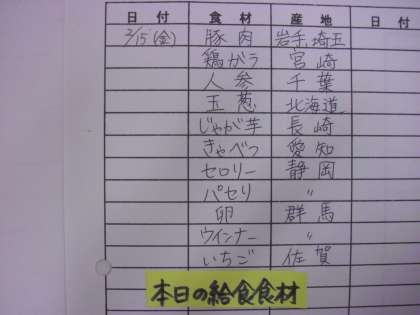 日付 食材 産地 日付
2/15(金) 豚肉 岩手、埼玉
鶏がラ 宮崎
人参 千葉
玉葱 北海道
じゃが芋 長崎
きゃべつ 愛知
セロリー 静岡
パセリ 〃
卵 群馬
ウインナー 〃
いちご 佐賀
本日の給食食材